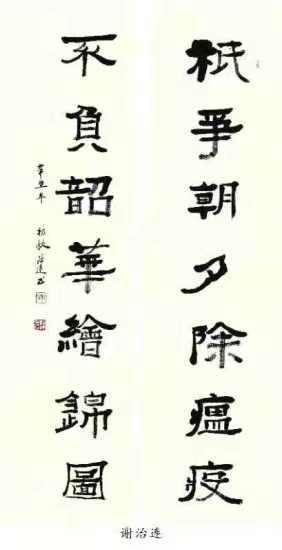 祇爭朝夕除瘟疫
不負韶華繪錦圖
辛丑年
谢治连